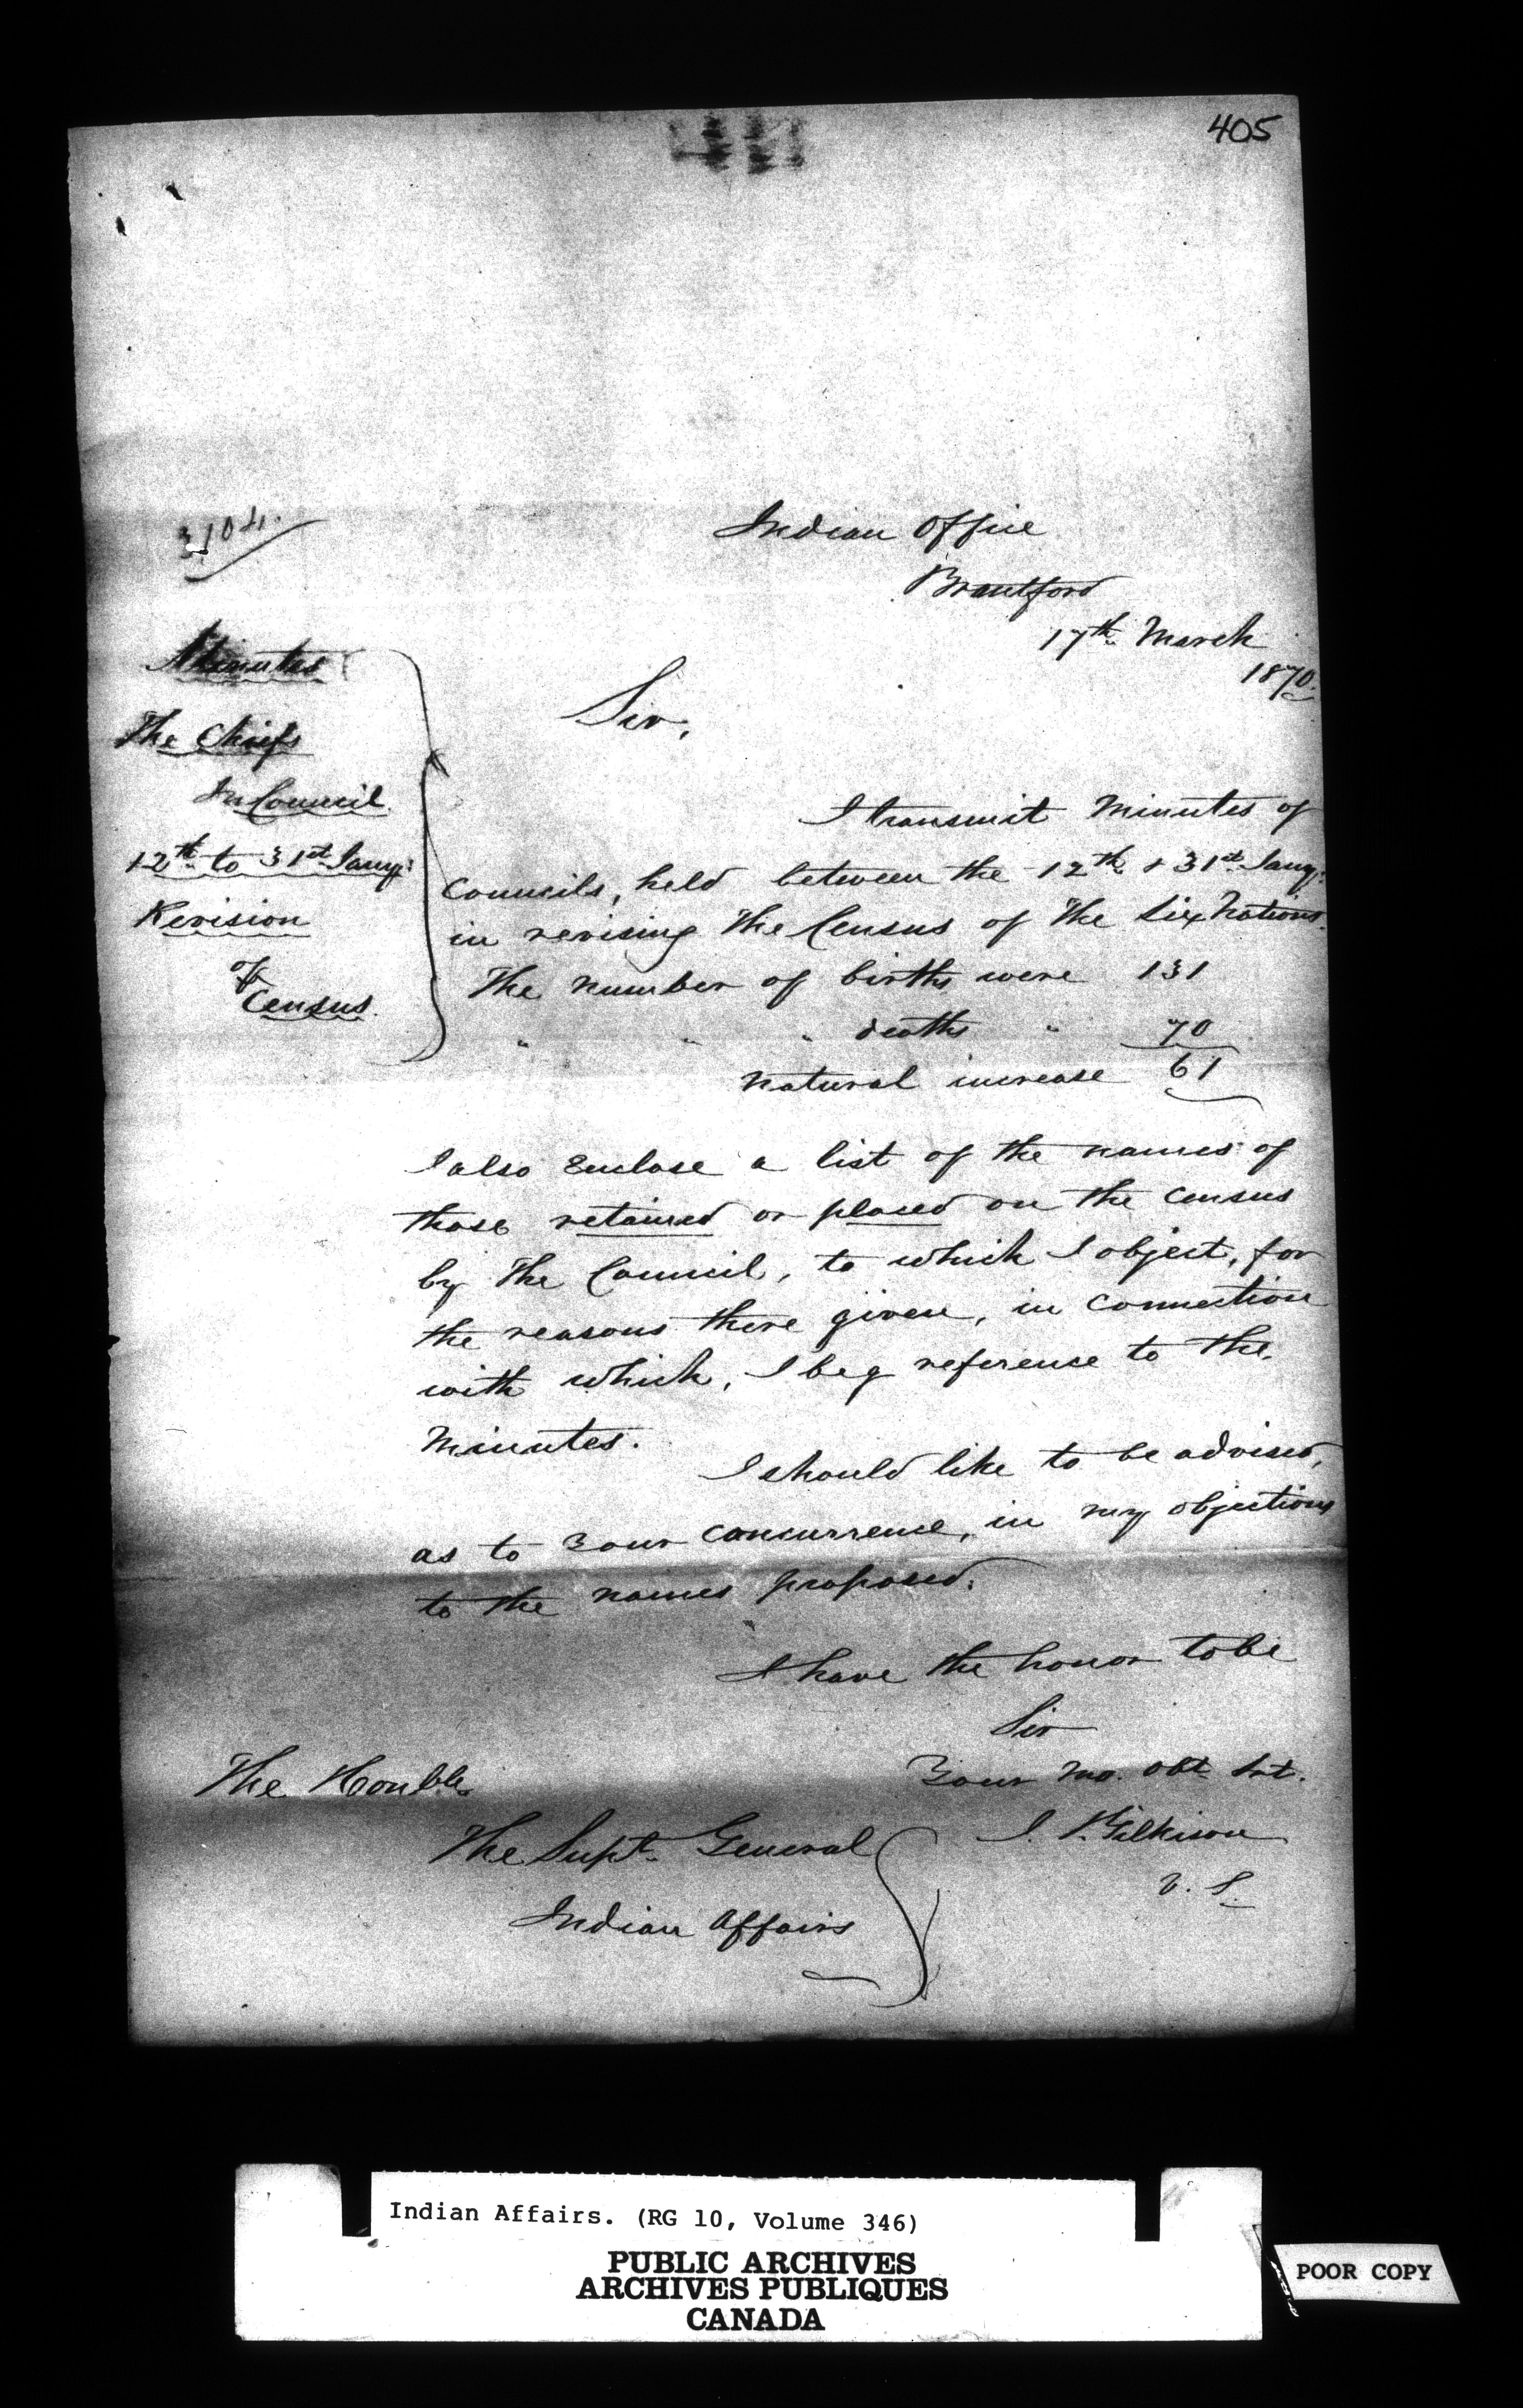 405
3104.
Indian Office
Brantford
17th March
1870.
Minutes
The Chiefs
In Council
12th to 31st Jany:
Revision
of
Census.
Sir,
I transmit Minutes of
Councils, held between the 12th & 31st Jany:
in revising The Census of The Six Nations.
The number of births were 131
" " " deaths " 70
natural increase 61
I also Enclose a list of the names of
those retained or placed on the Census
by The Council, to which I object, for
the reasons there given, in connection
with which, I beg reference to the
Minutes.
I should like to be advised,
as to Your concurrence, in my objections
to the names proposed.
I have the honor to be
Sir
Your mo. obt Svt.
J. T. Gilkison
V. S.
The Honble
The Supt. General
Indian Affairs
Indian Affairs. (RG 10, Volume 346)
PUBLIC ARCHIVES
ARCHIVES PUBLIQUES
CANADA
POOR COPY